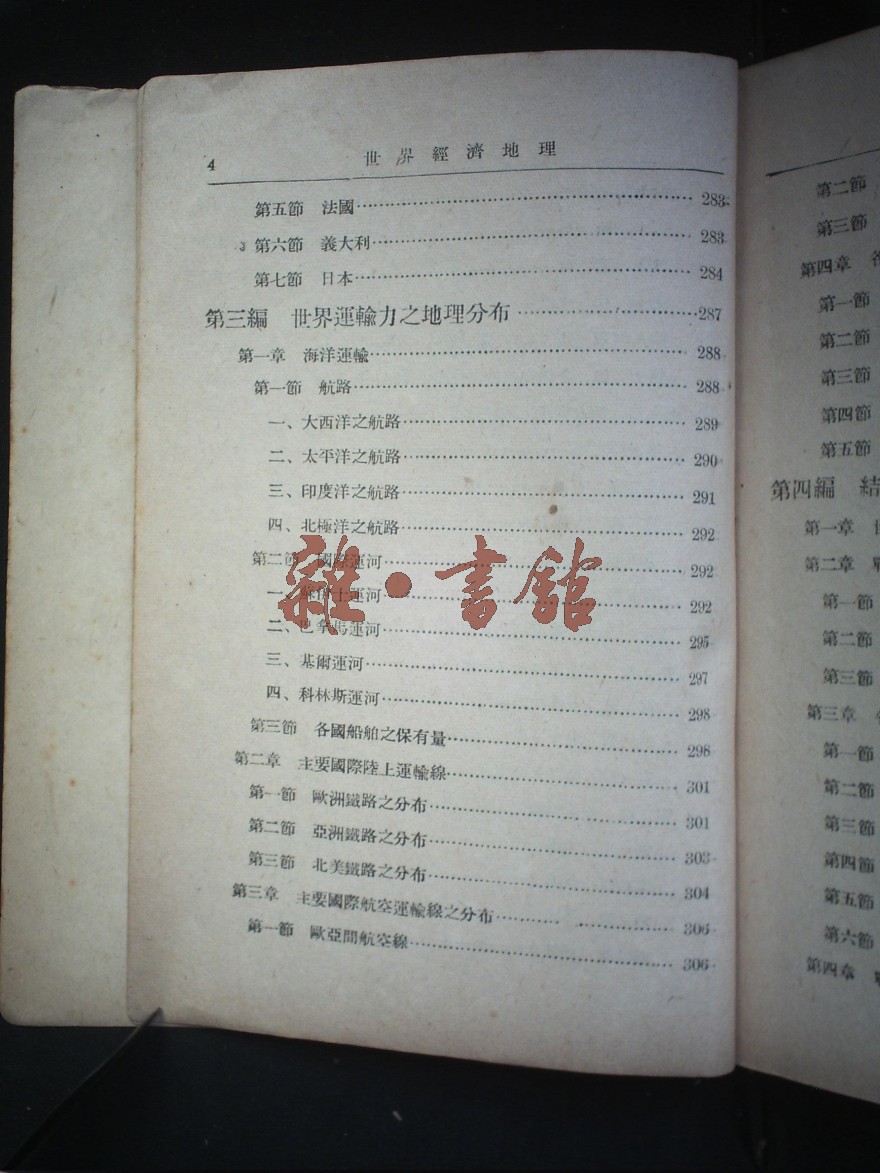 4 世界經濟地理
第五節 法國 283
第六節 義大利 283
第七節 日本 284
第三編 世界運輸力之地理分布 287
第一章 海洋運輸 288
第一節 航路 288
一、大西洋之航路 289
二、太平洋之航路 290
三、印度洋之航路 291
四、北極洋之航路 292
第二節 國際運河 292
一、蘇彝士運河 292
二、巴拿馬運河 295
三、基爾運河 297
四、科林斯運河 298
第三節 各國船舶之保有量 298
第二章 主要國際陸上運輸線 301
第一節 歐洲鐵路之分布 301
第二節 亞洲鐵路之分布 303
第三節 北美鐵路之分布 304
第三章 主要國際航空運輸線之分布 306
第一節 歐亞間航空線 306
雜·書館
第二節
第三節
第四章 各
第一節
第二節
第三節
第四節
第五節
第四編 結
第一章
第二章
第一節
第二節
第三節
第三章
第一節
第二節
第三節
第四節
第五節
第六節
第四章